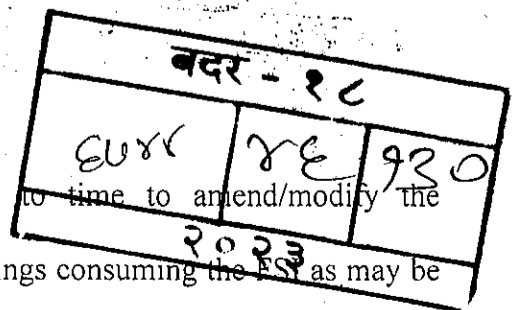 बदर - १८
६७४४ ४६ १३०
to time to amend/modify the
२०२३
ings consuming the FSI as may be